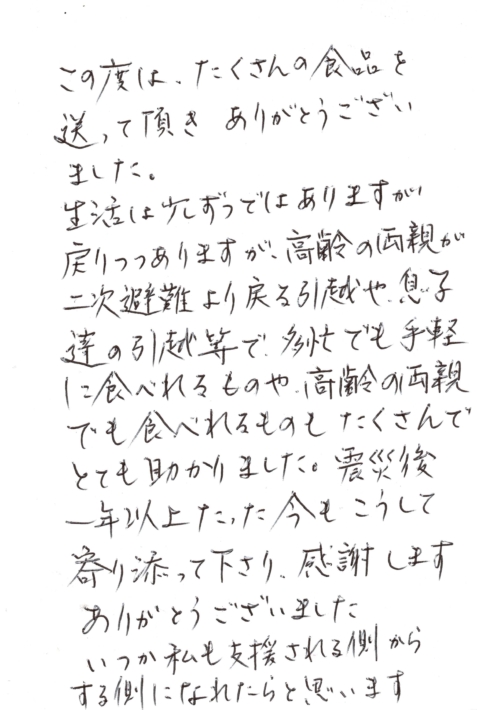 この度は、たくさんの食品を
送って頂き ありがとうござい
ました。
生活は少しずつではありますが
戻りつつありますが、高齢の両親が
二次避難より戻る引越や、息子
達の引越等で、多忙でも手軽
に食べれるものや、高齢の両親
でも食べれるものも たくさんで
とても助かりました。震災後
一年以上たった今も こうして
寄り添って下さり、感謝します
ありがとうございました
いつか私も支援される側から
する側になれたらと思います